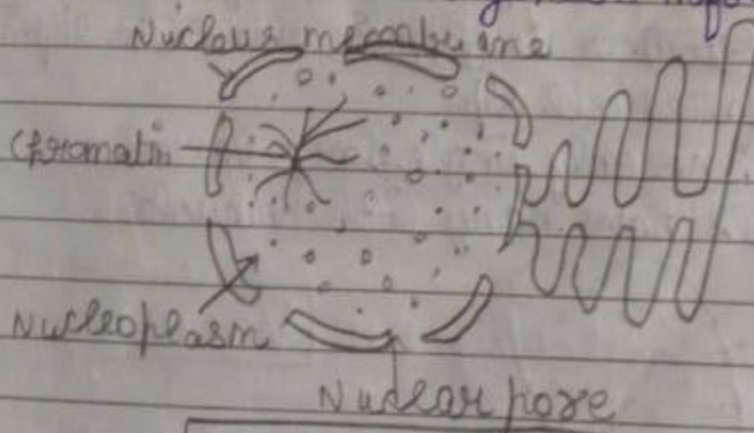 Nucleus membrane
Chromatin
Nucleoplasm
Nuclear pore